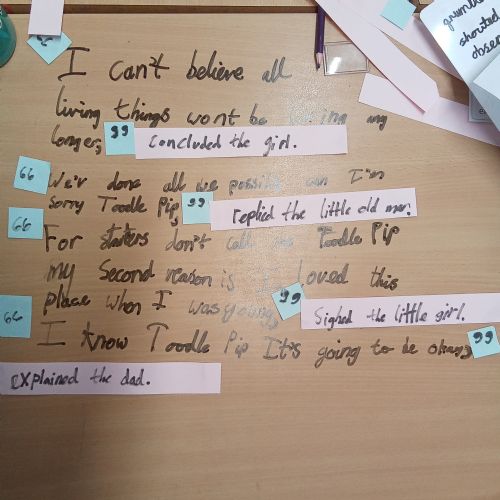 grumbl
shouted
obser
66
I can't believe all
living things wont be living any
longer, 99 Concluded the girl.
66 We'r done all we possibly can I'm
Sorry Toodle Pip, 99 replied the little old man.
66 For starters don't call me Toodle Pip
my Second reason is I loved this
place when I was young, 99 Sighed the little girl.
66 I know Toodle Pip It's going to be okay, 99
Explained the dad.